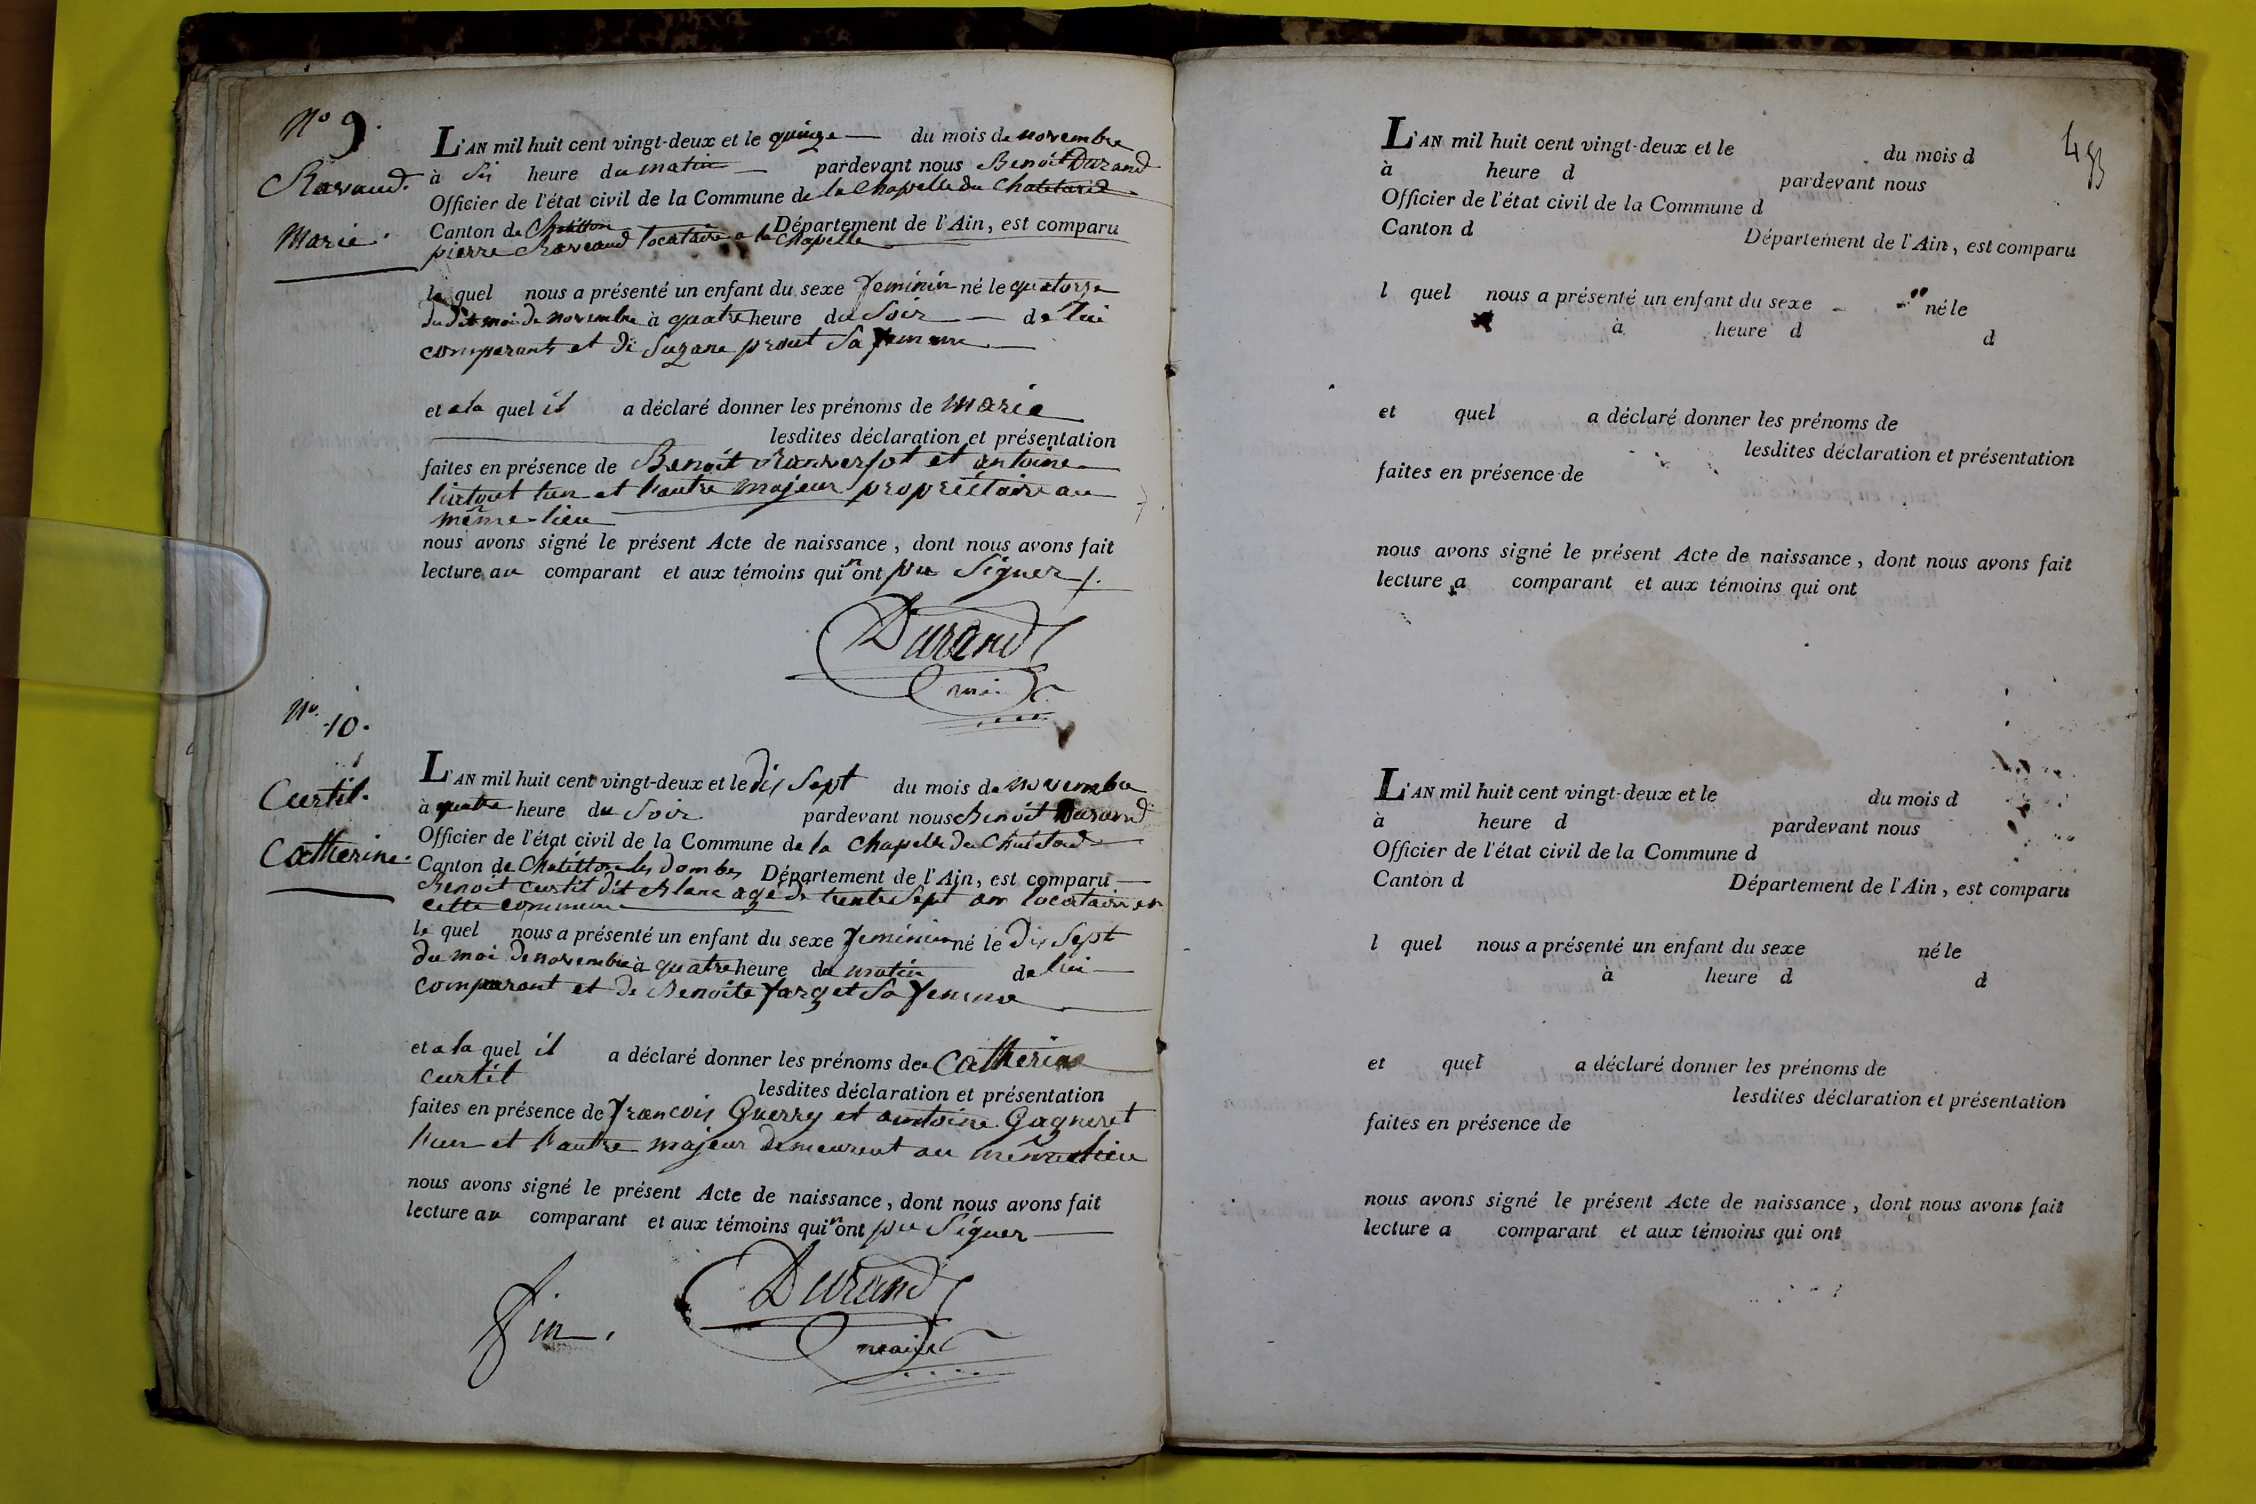 No 9.
Ravaud.
Marie.
L'AN mil huit cent vingt-deux et le quinze du mois de novembre
à six heure du matin pardevant nous Benoit Durand
Officier de l'état civil de la Commune de la Chapelle du Chatelard
Canton de Chatillon Département de l'Ain, est comparu
pierre Raveaud locataire a la Chapelle
le quel nous a présenté un enfant du sexe feminin né le quatorze
du dit moi de novembre à quatre heure du Soir de lui
comparant et de Suzane prout Sa femme
et a la quel il a déclaré donner les prénoms de Marie
lesdites déclaration et présentation
faites en présence de Benoit et antoine
l'un et l'autre majeur propriétaire au
même lieu
nous avons signé le présent Acte de naissance, dont nous avons fait
lecture au comparant et aux témoins qui n'ont pu Signer
Durand
No 10.
Curtil.
Catherine.
L'AN mil huit cent vingt-deux et le dix Sept du mois de novembre
à quatre heure du Soir pardevant nous Benoit Durand
Officier de l'état civil de la Commune de la Chapelle du Chatelard
Canton de Chatillon les dombes Département de l'Ain, est comparu
Benoit Curtil dit Blanc agé de trente Sept an locataire en
cette commune
le quel nous a présenté un enfant du sexe feminin né le dix Sept
du moi de novembre à quatre heure du matin de lui
comparant et de Benoite farget Sa femme
et a la quel il a déclaré donner les prénoms de Catherine
curtil
lesdites déclaration et présentation
faites en présence de francois Guerry et antoine Gagneret
l'un et l'autre majeur demeurent au même lieu
nous avons signé le présent Acte de naissance, dont nous avons fait
lecture au comparant et aux témoins qui n'ont pu Signer
Durand
maire
fin.
453
L'AN mil huit cent vingt-deux et le du mois d
à heure d pardevant nous
Officier de l'état civil de la Commune d
Canton d Département de l'Ain, est comparu
l quel nous a présenté un enfant du sexe né le
à heure d d
et quel a déclaré donner les prénoms de
lesdites déclaration et présentation
faites en présence de
nous avons signé le présent Acte de naissance, dont nous avons fait
lecture a comparant et aux témoins qui ont
L'AN mil huit cent vingt-deux et le du mois d
à heure d pardevant nous
Officier de l'état civil de la Commune d
Canton d Département de l'Ain, est comparu
l quel nous a présenté un enfant du sexe né le
à heure d d
et quel a déclaré donner les prénoms de
lesdites déclaration et présentation
faites en présence de
nous avons signé le présent Acte de naissance, dont nous avons fait
lecture a comparant et aux témoins qui ont